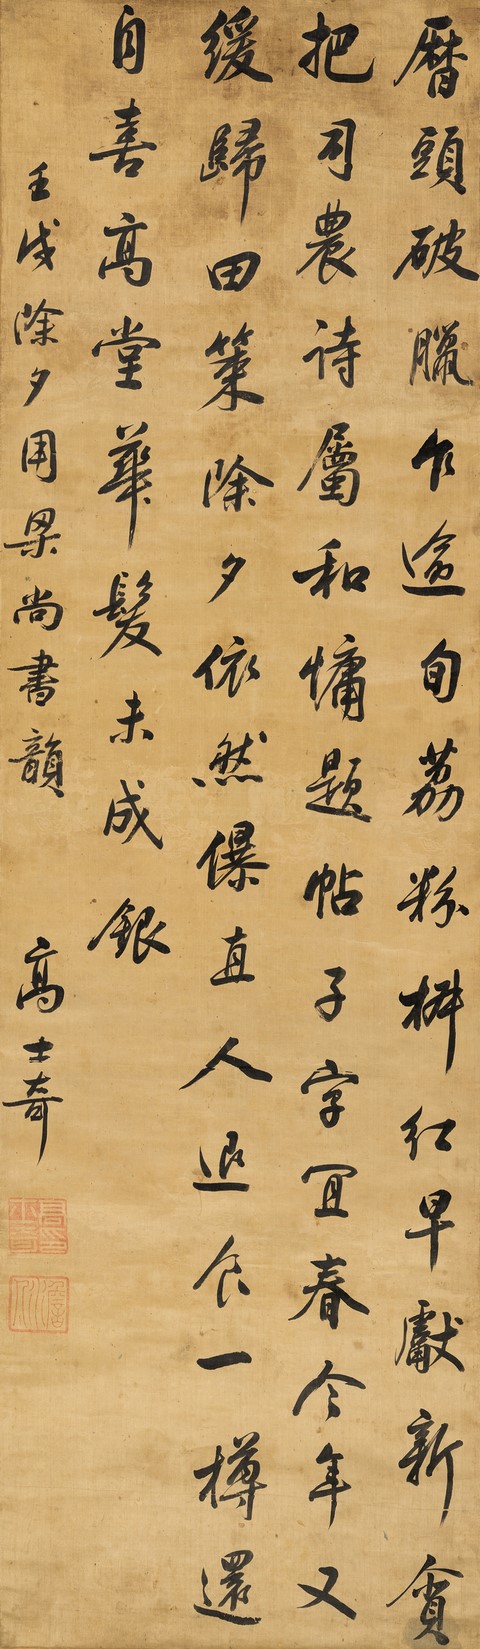 暦頭破臘乍逾旬荔粉红早獻新貪
把司農诗屬和慵题帖子字宜春今年又
缓歸田策除夕依然儤直人退食一樽還
自喜高堂華髮未成銀
壬戌除夕用梁尚書韻 高士奇